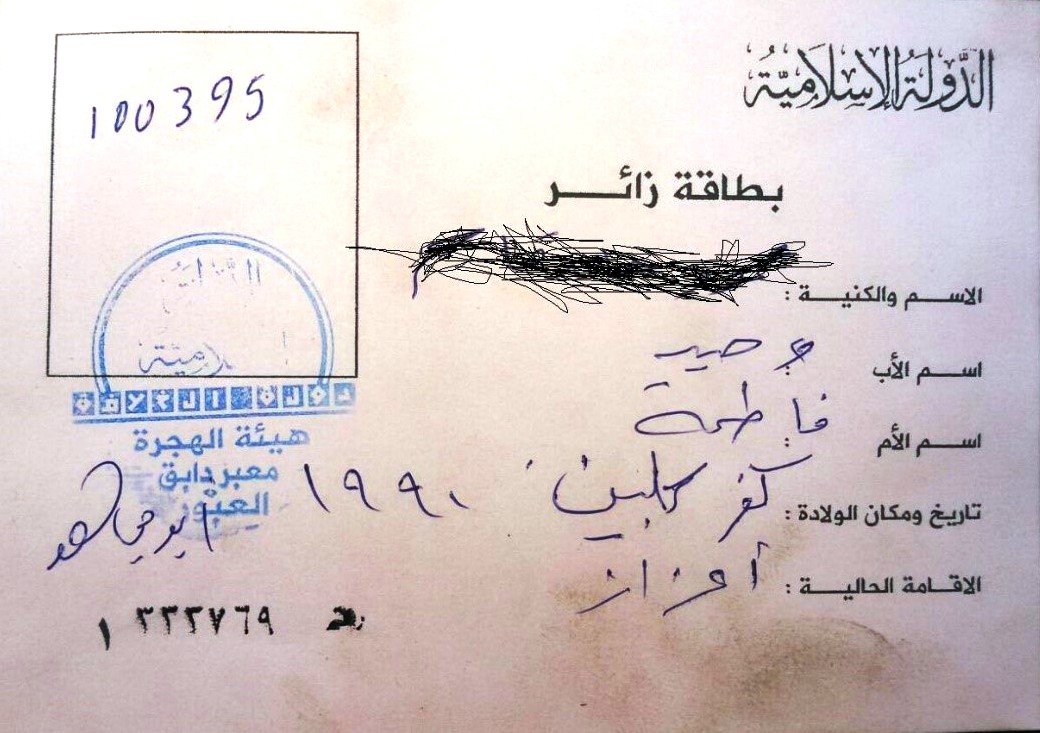 الدَّوْلَةُ الإِسْلَامِيَّةُ
100395
بطاقة زائر
الاسم والكنية :
اسم الأب : وحيد
اسم الأم : فاطمة
تاريخ ومكان الولادة : كفر كلبين ١٩٩٠
الاقامة الحالية :
دولة الخلافة
هيئة الهجرة
معبر دابق
العبور